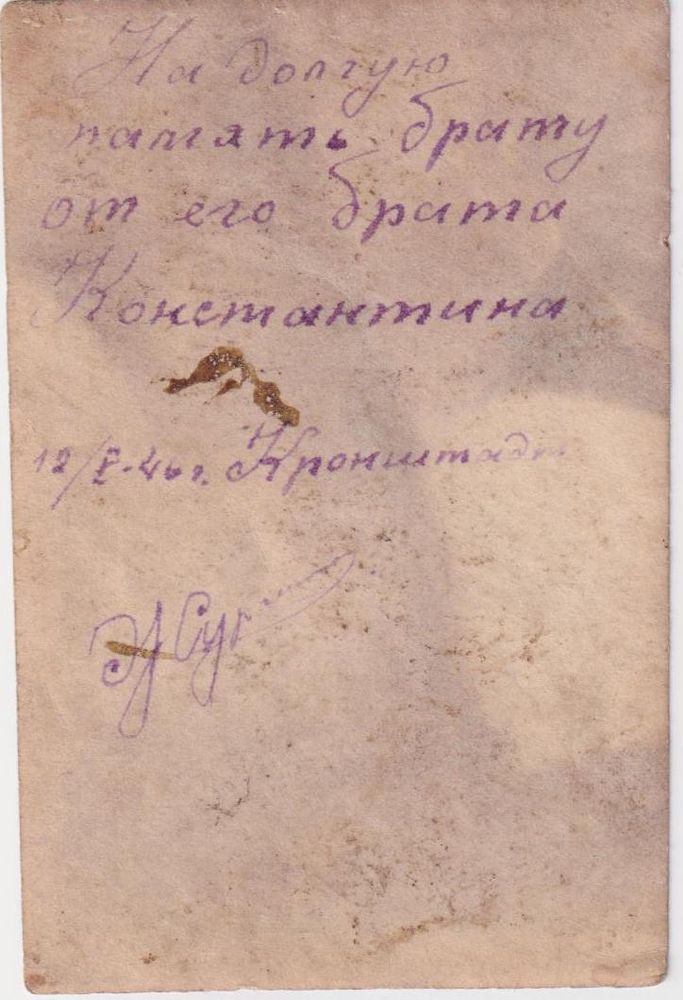 На долгую
память брату
от его брата
Константина
12/V-46 г. Кронштадт